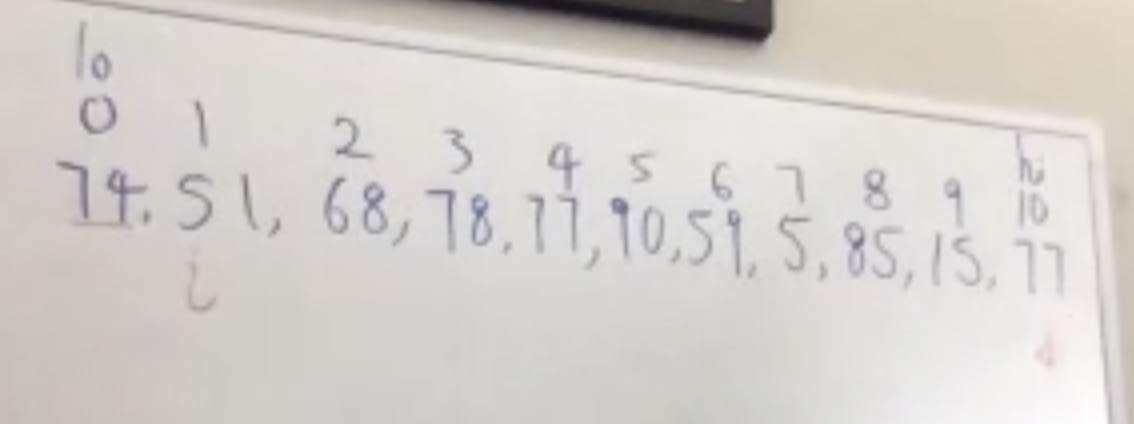 lo hi
0 1 2 3 4 5 6 7 8 9 10
74, 51, 68, 78, 77, 90, 59, 5, 85, 15, 77
i